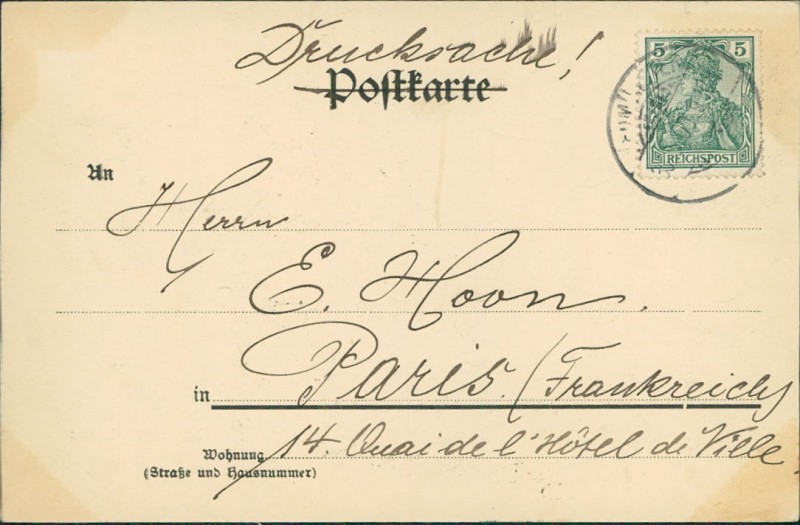 Drucksache!
Postkarte
5 5
REICHSPOST
An
Herrn
E. Hoon.
in Paris. (Frankreich)
Wohnung 14. Quai de l'Hôtel de Ville.
(Straße und Hausnummer)